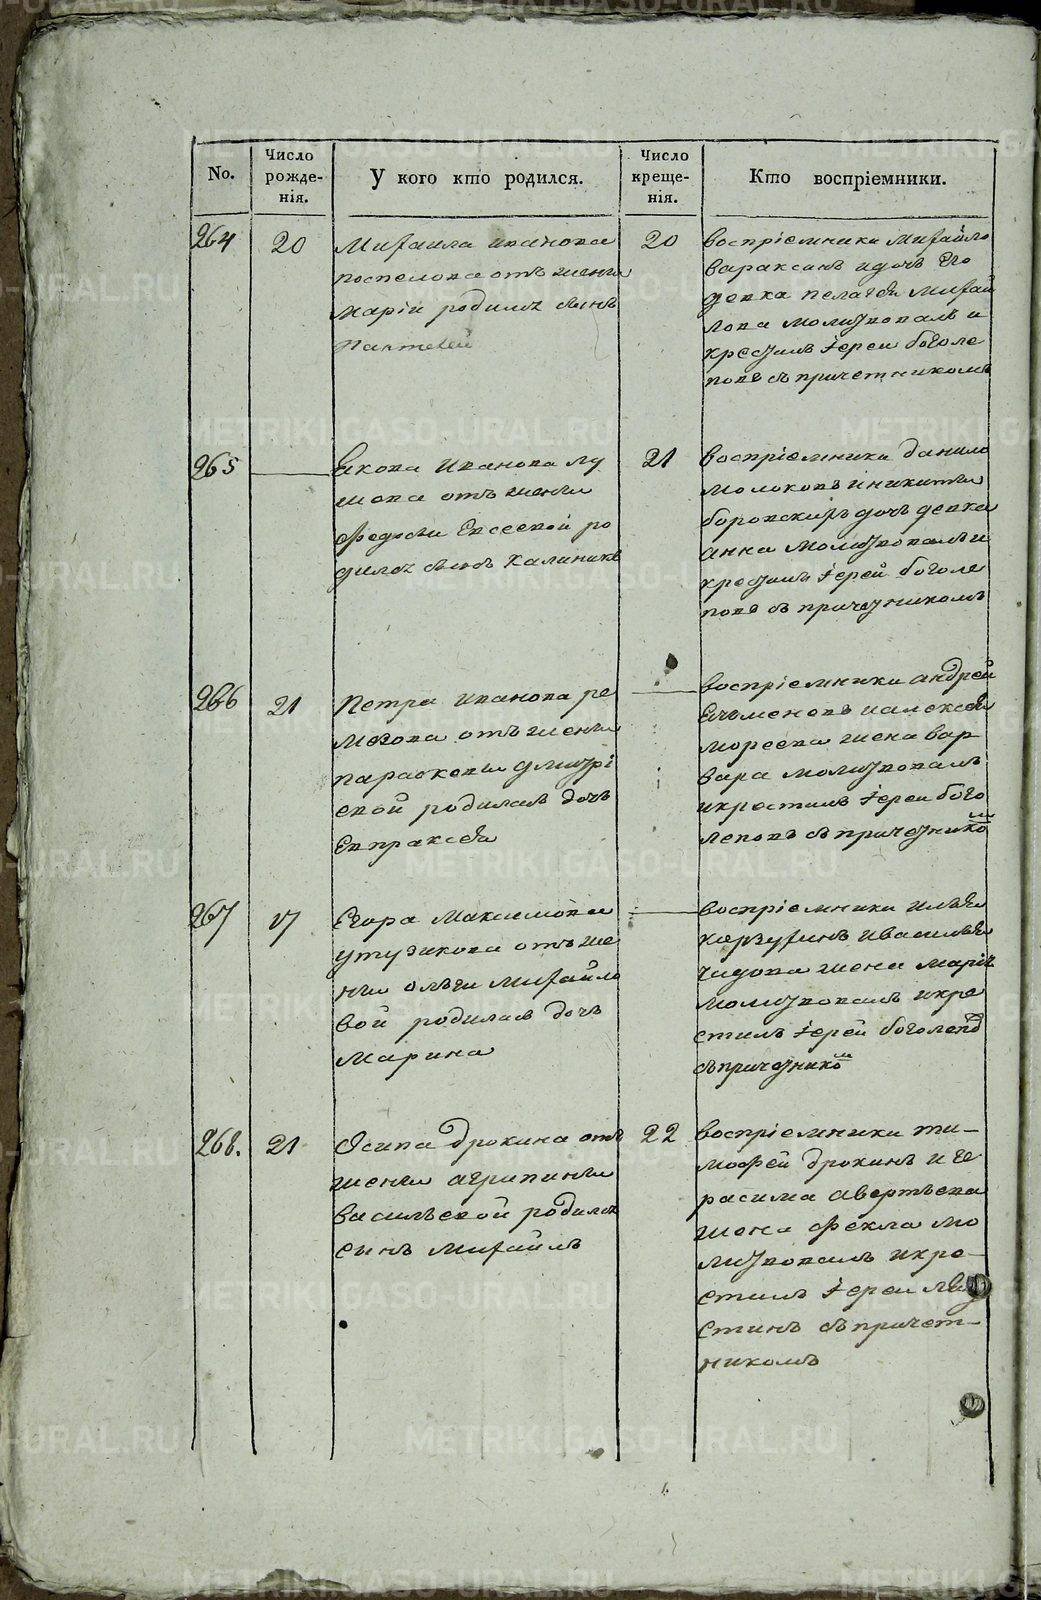 No.
Число рожде-нія.
У кого кто родился.
Число креще-нія.
Кто воспріемники.
264
20
Михаила иванова
поспелова отъ жены
маріи родился сынъ
Пантелей
20
воспріемники михайло
вараксинъ и дочь его
девка пелагея михай
лова молитвовалъ и
крестилъ іереи боголе
повъ съ причетникомъ
265
Якова Иванова лу
шова отъ жены
федосьи Евсеевой ро
дился сынъ Калиникъ
21
воспріемники данило
молоковъ и никиты
боровскихъ дочь девка
анна молитвовалъ и
крестилъ іерей боголе
повъ съ причетникомъ
266
21
Петра иванова ре
мезова отъ жены
парасковьи дмитрі
евой родилась дочь
Евпраксея
воспріемники андрей
Ячменевъ и алексея
мореева жена вар
вара молитвовалъ
и крестилъ іереи бого
леповъ съ причетникомъ
267
17
Егора максимова
утузикова отъ же
ны ольги михайло
вой родилась дочь
марина
воспріемники илья
и василья
чадова жена марія
молитвовалъ и кре
стилъ іерей боголеповъ
съ причетникомъ
268.
21
Осипа дрокина отъ
жены агрипины
васильевой родился
сынъ михаилъ
22
воспріемники ти-
мофей дрокинъ и ге
расима аверьева
жена фекла мо
литвовалъ и кре-
стилъ іереи
съ причет-
никомъ
METRIKI.GASO-URAL.RU